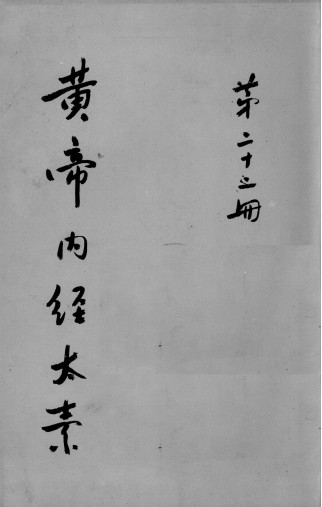 第二十三冊
黄帝内经太素